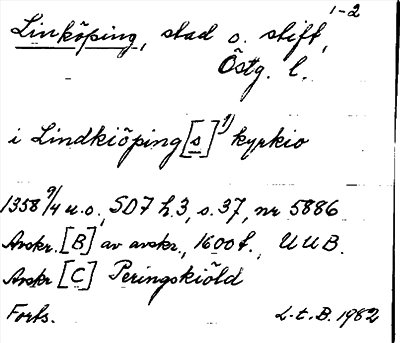 1-2
Linköping, stad o. stift,
Östg. l.
i Lindkiöping [s] 1) kyrkio
1358 9/4 u.o., SD7 h.3, s.37, nr 5886
Avskr. [B] av avskr., 1600 t., UUB.
Avskr [C] Peringskiöld
Forts. L.t.B. 1982